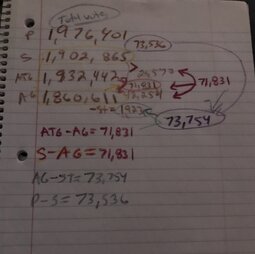 Total votes
P 1,976,401
73,536
S 1,902,865
ATG 1,932,442
29,577
71,831
71,831
AG 1,860,611
42,254
-ST= 
73,754
ATG-AG= 71,831
S-AG= 71,831
AG-ST= 73,754
P-S= 73,536